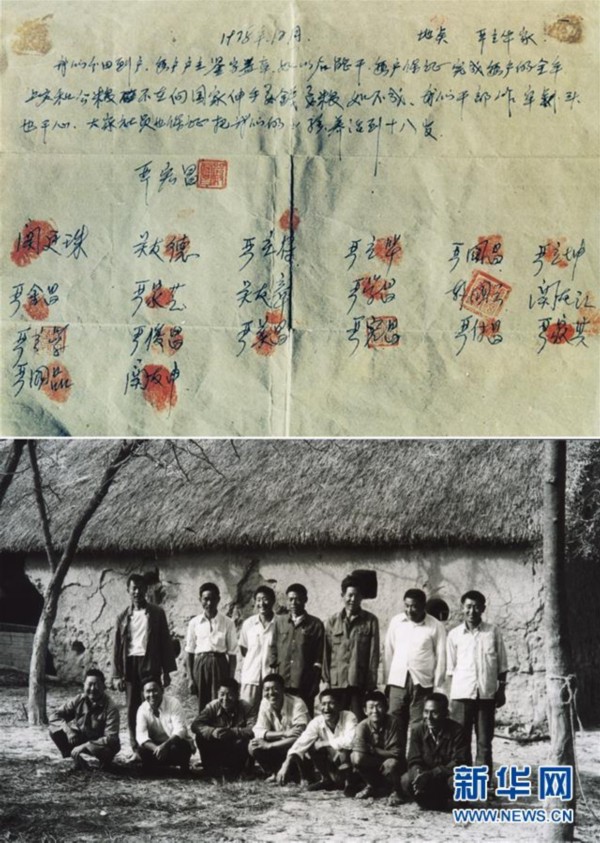 1978年12月 地点 严立华家
我们分田到户，每户户主签字盖章，如以后能干，每户保证完成每户的全年
上交和公粮不在向国家伸手要钱要粮，如不成，我们干部作牢刹头
也干心，大家社员也保证把我们的小孩养活到十八岁。
严宏昌
关廷珠 关友德 严立符 严立华 严国昌 严立坤
严金昌 严家芝 关友章 严学昌 韩国云 关友江
严立学 严俊昌 严美昌 严宏昌 严付昌 严家其
严国品 关友申
新华网
WWW.NEWS.CN